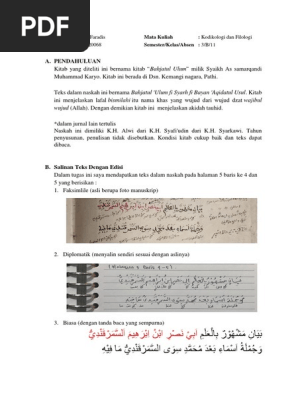 PDF
Faradis Mata Kuliah : Kodikologi dan Filologi
0066 Semester/Kelas/Absen : 3/B/11
A. PENDAHULUAN
Kitab yang diteliti ini bernama kitab "Bahjatul Ulum" milik Syaikh As samarqandi
Muhammad Karyo. Kitab ini berada di Dsn. Kemangi nagara, Pathi.
Teks dalam naskah ini bernama Bahjatul Ulum fi Syarh fi Bayan 'Aqidatul Usul. Kitab
ini menjelaskan lafal bismilahi itu nama khas yang wujud dari wujud dzat wajibul
wujud (Allah). Dengan demikian kitab ini menjelaskan akidah tauhid.
*dalam jurnal lain tertulis
Naskah ini dimiliki K.H. Alwi dari K.H. Syafi'udin dari K.H. Syarkawi. Tahun
penyusunan, penulisan tidak disebutkan. Kondisi kitab cukup baik dan teks dapat
dibaca.
B. Salinan Teks Dengan Edisi
Dalam tugas ini saya mendapatkan teks dalam naskah pada halaman 5 baris ke 4 dan
5 yang berisikan :
1. Faksimilie (asli berupa foto manuskrip)
2. Diplomatik (menyalin sendiri sesuai dengan aslinya)
3. Biasa (dengan tanda baca yang sempurna)
بَيَان مَشْهُوْرٌ بِالْعِلْمِ أَبِيْ نَصْرٍ ابْنُ اِبْرهِيمَ السَّمَرْقَنْدِيُّ
وَجُمْلَةُ أَسْمَاءٍ بَعْدَ مُحَمَّدٍ سِوَى السَّمَرْقَنْدِيُّ مَا فِيْهِ